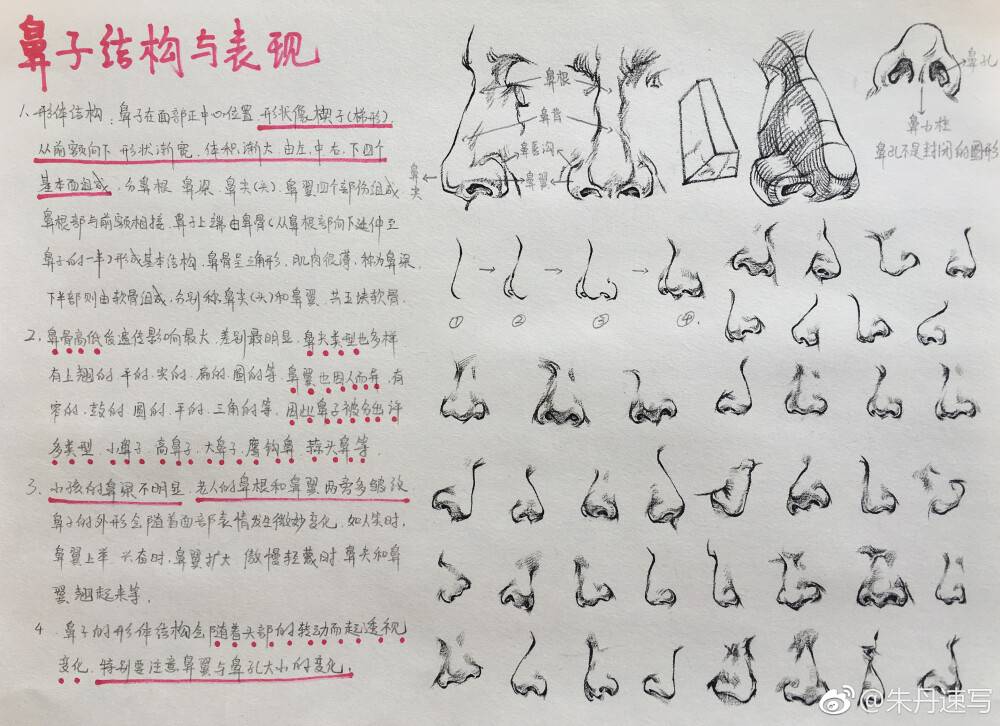 鼻子结构与表现
1、形体结构、鼻子在面部正中心位置、形状像楔子(梯形)、
从前额向下 形状渐宽、体积渐大、由左、中、右、下四个
基本面组成、分鼻根、鼻梁、鼻尖(头)、鼻翼四个部份组成
鼻根部与前额相接、鼻子上端由鼻骨(从鼻根部向下延伸至
鼻子的一半)形成基本结构、鼻骨呈三角形、肌肉很薄、称为鼻梁、
下半部则由软骨组成、分别称鼻尖(头)和鼻翼、共五块软骨、
2、鼻骨高低受遗传影响最大、差别最明显、鼻尖类型也多样
有上翘的、平的、尖的、扁的、圆的等、鼻翼也因人而异、有
窄的、鼓的、圆的、平的、三角的等、因此鼻子被分出许
多类型、小鼻子、高鼻子、大鼻子、鹰钩鼻、蒜头鼻等、
3、小孩的鼻梁不明显、老人的鼻根和鼻翼两旁多皱纹
鼻子的外形会随着面部表情发生微妙变化、如人笑时、
鼻翼上羊、兴奋时、鼻翼扩大 傲慢轻蔑时 鼻尖和鼻
翼翘起来等、
4、鼻子的形体结构会随着头部的转动而起透视
变化、特别要注意鼻翼与鼻孔大小的变化、
鼻根
鼻背
鼻唇沟
鼻翼
鼻尖
鼻孔
鼻小柱
鼻孔不是封闭的圆形
① ② ③ ④
@朱丹速写